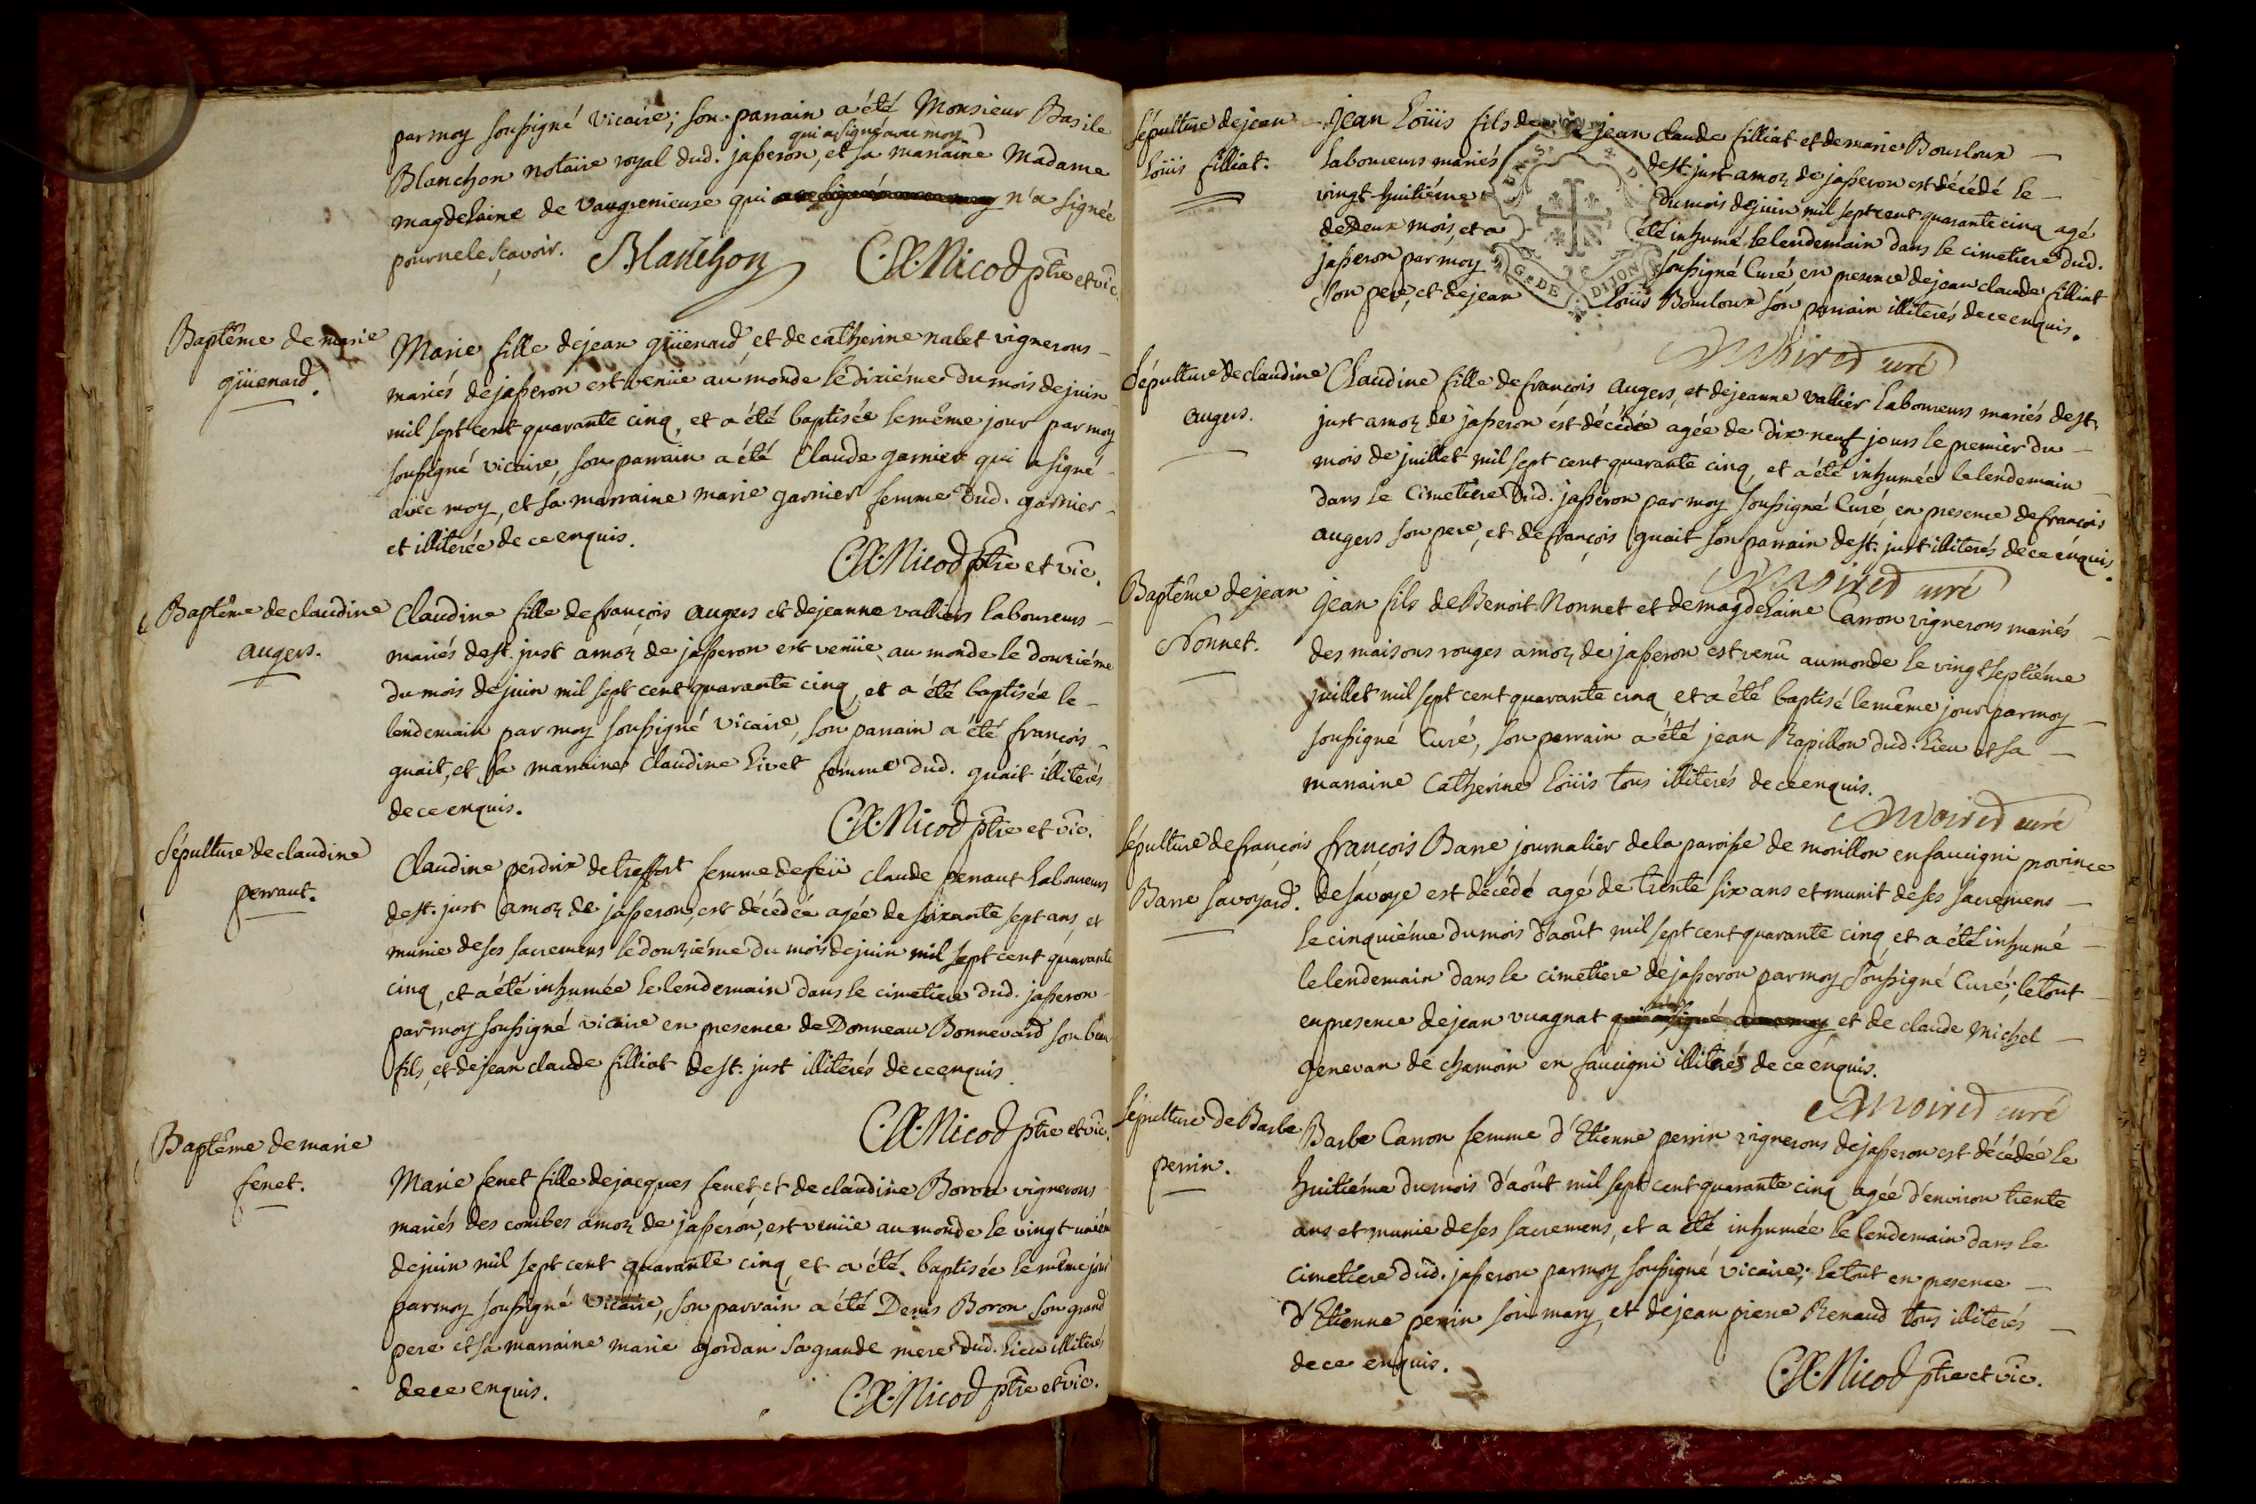 par moy soussigné vicaire; son parrain a été Monsieur Basile
qui a signé avec moy
Blanchon notaire royal dud. jasseron, et sa marraine Madame
magdelaine de Vaugrenieuse qui n'a signée
pour ne le sçavoir. Blanchon C.x.Nicod ptre et vic.
Baptême de marie
güenard.
Marie fille de jean güenard et de catherine nalet vignerons
mariés de jasseron est venüe au monde le dixiéme du mois de juin
mil sept cent quarante cinq, et a été baptisée le même jour par moy
soussigné vicaire, son parrain a été Claude garnier qui a signé
avec moy, et sa marraine marie garnier femme dud. garnier
et illiterée de ce enquis.
C.x.Nicod ptre et vic.
Baptême de claudine
augers.
Claudine fille de françois augers et de jeanne valliers laboureurs
mariés de st. just amoz de jasseron est venüe au monde le douziéme
du mois de juin mil sept cent quarante cinq, et a été baptisée le
lendemain par moy soussigné vicaire, son parrain a été françois
guait, et sa marraine Claudine Livet femme dud. guait illiterés
de ce enquis.
C.x.Nicod ptre et vic.
Sépulture de claudine
perraut.
Claudine perdrix de treffort femme de feü claude perraut laboureurs
de st. just amoz de jasseron, est décédée agée de soixante sept ans, et
munie de ses sacremens le douziéme du mois de juin mil sept cent quarante
cinq, et a été inhumée le lendemain dans le cimetiere dud. jasseron
par moy soussigné vicaire en presence de Donneau Bonnevard son beau
fils, et de jean claude filliat de st. just illiterés de ce enquis.
C.x.Nicod ptre et vic.
Baptême de marie
fenet.
Marie fenet fille de jacques fenet et de claudine Boron vignerons
mariés des combes amoz de jasseron, est venüe au monde le vingt uniém
de juin mil sept cent quarante cinq, et a été baptisée le même jour
par moy soussigné vicaire, son parrain a été Denis Boron son grand
pere et sa marraine marie gordan sa grande mere dud. lieu illiterés
de ce enquis.
C.x.Nicod ptre et vic.
Sépulture de jean
Loüis filliat.
Jean Loüis fils de jean claude filliat et de marie Bourloux
laboureurs mariés de st. just amoz de jasseron est décédé le
vingt huitiéme du mois de juin mil sept cent quarante cinq agé
de deux mois, et a été inhumé le lendemain dans le cimetiere dud.
jasseron par moy soussigné Curé, en presence de jean claude filliat
son pere, et de jean Loüis Bourloux son parrain illiterés de ce enquis.
curé
G. DE DIJON
Sépulture de claudine
augers.
Claudine fille de françois augers, et de jeanne vallier laboureurs mariés de st.
just amoz de jasseron est décédée agée de dix neuf jours le premier du
mois de juillet mil sept cent quarante cinq, et a été inhumée le lendemain
dans le cimetiere dud. jasseron par moy soussigné Curé en presence de françois
augers son pere, et de françois guait son parrain de st. just illiterés de ce enquis.
curé
Baptême de jean
Nonnet.
Jean fils de Benoit Nonnet et de magdelaine Carron vignerons mariés
des maisons rouges amoz de jasseron est venû au monde le vingt septiéme
juillet mil sept cent quarante cinq et a été baptisé le même jour par moy
soussigné Curé, son parrain a été jean Rapillon dud. lieu et sa
marraine Catherine Loüis tous illiterés de ce enquis.
curé
Sépulture de françois
Barre savoyard.
françois Barre journalier de la paroisse de morillon en faucigni province
de savoye est décédé agé de trente six ans et munit de ses sacremens
le cinquiéme du mois d'août mil sept cent quarante cinq, et a été inhumé
le lendemain dans le cimetiere de jasseron par moy soussigné Curé; le tout
en presence de jean vuagnat et de claude michel
genevan de chamoin en faucigni illiterés de ce enquis.
curé
Sépulture de Barbe
perrin.
Barbe Carron femme d'Etienne perrin vignerons de jasseron est décédée le
huitiéme du mois d'août mil sept cent quarante cinq agée d'environ trente
ans et munie de ses sacremens, et a été inhumée le lendemain dans le
cimetiere dud. jasseron par moy soussigné vicaire; le tout en presence
d'Etienne perrin son mary, et de jean pierre Renaud tous illiterés
de ce enquis.
C.x.Nicod ptre et vic.